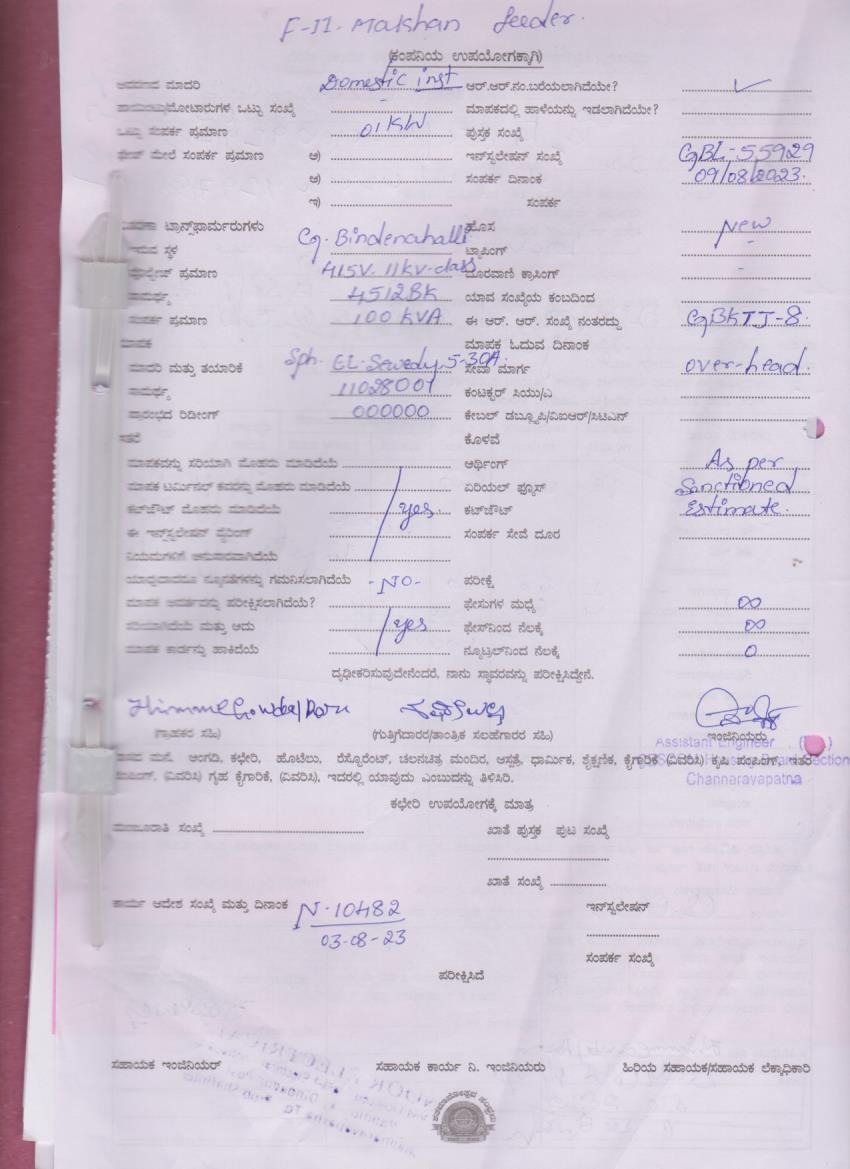 F-11- Makhan feeder.
(ಕಂಪನಿಯ ಉಪಯೋಗಕ್ಕಾಗಿ)
ಮಾದರಿ Domestic inst ಆರ್.ಆರ್.ನಂ.ಬರೆಯಲಾಗಿದೆಯೇ? ✓
ಒಟ್ಟು ಸಂಖ್ಯೆ - ಮಾಪಕದಲ್ಲಿ ಹಾಳೆಯನ್ನು ಇಡಲಾಗಿದೆಯೇ?
ಒಟ್ಟು ಸಂಪರ್ಕ ಪ್ರಮಾಣ 01KW ಪುಸ್ತಕ ಸಂಖ್ಯೆ
ಮೇಲೆ ಸಂಪರ್ಕ ಪ್ರಮಾಣ ಅ) ಇನ್‌ಸ್ಟಲೇಷನ್ ಸಂಖ್ಯೆ CGBL-55929
ಆ) ಸಂಪರ್ಕ ದಿನಾಂಕ 09/08/2023.
ಇ) ಸಂಪರ್ಕ
ಟ್ರಾನ್ಸ್‌ಫಾರ್ಮರುಗಳು ಹೊಸ New
ಸ್ಥಳ G. Bindenahalli ಟ್ಯಾಪಿಂಗ್ -
ಪ್ರಮಾಣ 415V. 11kv-class ದೂರವಾಣಿ ಕ್ರಾಸಿಂಗ್ -
ಸಾಮರ್ಥ್ಯ 4512BK ಯಾವ ಸಂಖ್ಯೆಯ ಕಂಬದಿಂದ
ಸಂಪರ್ಕ ಪ್ರಮಾಣ 100 KVA ಈ ಆರ್. ಆರ್. ಸಂಖ್ಯೆ ನಂತರದ್ದು CGBKTJ-8
ಮಾಪಕ ಮಾಪಕ ಓದುವ ದಿನಾಂಕ
ಮಾದರಿ ಮತ್ತು ತಯಾರಿಕೆ Sph. EL-Sewedy, 5-30A. ಸೇವಾ ಮಾರ್ಗ over-head.
ಸಾಮರ್ಥ್ಯ 11028001 ಕಂಟಕ್ಟರ್ ಸಿಯು/ಎ
ಪ್ರಾರಂಭದ ರಿಡೀಂಗ್ 000000 ಕೇಬಲ್ ಡಬ್ಲ್ಯೂಪಿ/ವಿಐಆರ್/ಸಿಟಿಎನ್
ಇತರೆ ಕೊಳವೆ
ಮಾಪಕವನ್ನು ಸರಿಯಾಗಿ ಮೊಹರು ಮಾಡಿದೆಯೆ ಅರ್ಥಿಂಗ್ As per
ಮಾಪಕ ಟರ್ಮಿನಲ್ ಕವರನ್ನು ಮೊಹರು ಮಾಡಿದೆಯೆ ಏರಿಯಲ್ ಫ್ಯೂಸ್ Sanctioned
ಕಟ್‌ಔಟ್ ಮೊಹರು ಮಾಡಿದೆಯೆ yes. ಕಟ್‌ಔಟ್ Estimate.
ಈ ಇನ್‌ಸ್ಟಲೇಷನ್ ವೈರಿಂಗ್ ಸಂಪರ್ಕ ಸೇವೆ ದೂರ
ನಿಯಮಗಳಿಗೆ ಅನುಸಾರವಾಗಿದೆಯೆ
ಯಾವುದಾದರೂ ನ್ಯೂನತೆಗಳನ್ನು ಗಮನಿಸಲಾಗಿದೆಯೆ -NO- ಪರೀಕ್ಷೆ
ಮಾಪಕ ಪರೀಕ್ಷಿಸಲಾಗಿದೆಯೆ? ಫೇಸುಗಳ ಮಧ್ಯೆ ∞
ಸರಿಯಾಗಿದೆಯೆ ಮತ್ತು ಅದು yes ಫೇಸ್‌ನಿಂದ ನೆಲಕ್ಕೆ ∞
ಮಾಪಕ ಕಾರ್ಡನ್ನು ಹಾಕಿದೆಯೆ ನ್ಯೂಟ್ರಲ್‌ನಿಂದ ನೆಲಕ್ಕೆ 0
ದೃಢೀಕರಿಸುವುದೇನೆಂದರೆ, ನಾನು ಸ್ಥಾವರವನ್ನು ಪರೀಕ್ಷಿಸಿದ್ದೇನೆ.
(ಗ್ರಾಹಕರ ಸಹಿ) (ಗುತ್ತಿಗೆದಾರರ/ತಾಂತ್ರಿಕ ಸಲಹೆಗಾರರ ಸಹಿ) ಇಂಜಿನಿಯರು
Assistant Engineer
ವಾಸದ ಮನೆ, ಅಂಗಡಿ, ಕಛೇರಿ, ಹೊಟೆಲು, ರೆಸ್ಟೋರೆಂಟ್, ಚಲನಚಿತ್ರ ಮಂದಿರ, ಆಸ್ಪತ್ರೆ, ಧಾರ್ಮಿಕ, ಶೈಕ್ಷಣಿಕ, ಕೈಗಾರಿಕೆ (ವಿವರಿಸಿ) ಕೃಷಿ ಪಂಪಿಂಗ್, ಇತರೆ
ಪಂಪಿಂಗ್, (ವಿವರಿಸಿ) ಗೃಹ ಕೈಗಾರಿಕೆ, (ವಿವರಿಸಿ), ಇದರಲ್ಲಿ ಯಾವುದು ಎಂಬುದನ್ನು ತಿಳಿಸಿರಿ.
Channarayapatna
ಕಛೇರಿ ಉಪಯೋಗಕ್ಕೆ ಮಾತ್ರ
ಮಂಜೂರಾತಿ ಸಂಖ್ಯೆ ಖಾತೆ ಪುಸ್ತಕ ಪುಟ ಸಂಖ್ಯೆ
ಖಾತೆ ಸಂಖ್ಯೆ
ಕಾರ್ಯ ಆದೇಶ ಸಂಖ್ಯೆ ಮತ್ತು ದಿನಾಂಕ N-10482 ಇನ್‌ಸ್ಟಲೇಷನ್
03-08-23
ಸಂಪರ್ಕ ಸಂಖ್ಯೆ
ಪರೀಕ್ಷಿಸಿದೆ
ಸಹಾಯಕ ಇಂಜಿನಿಯರ್ ಸಹಾಯಕ ಕಾರ್ಯ ನಿ. ಇಂಜಿನಿಯರು ಹಿರಿಯ ಸಹಾಯಕ/ಸಹಾಯಕ ಲೆಕ್ಕಾಧಿಕಾರಿ